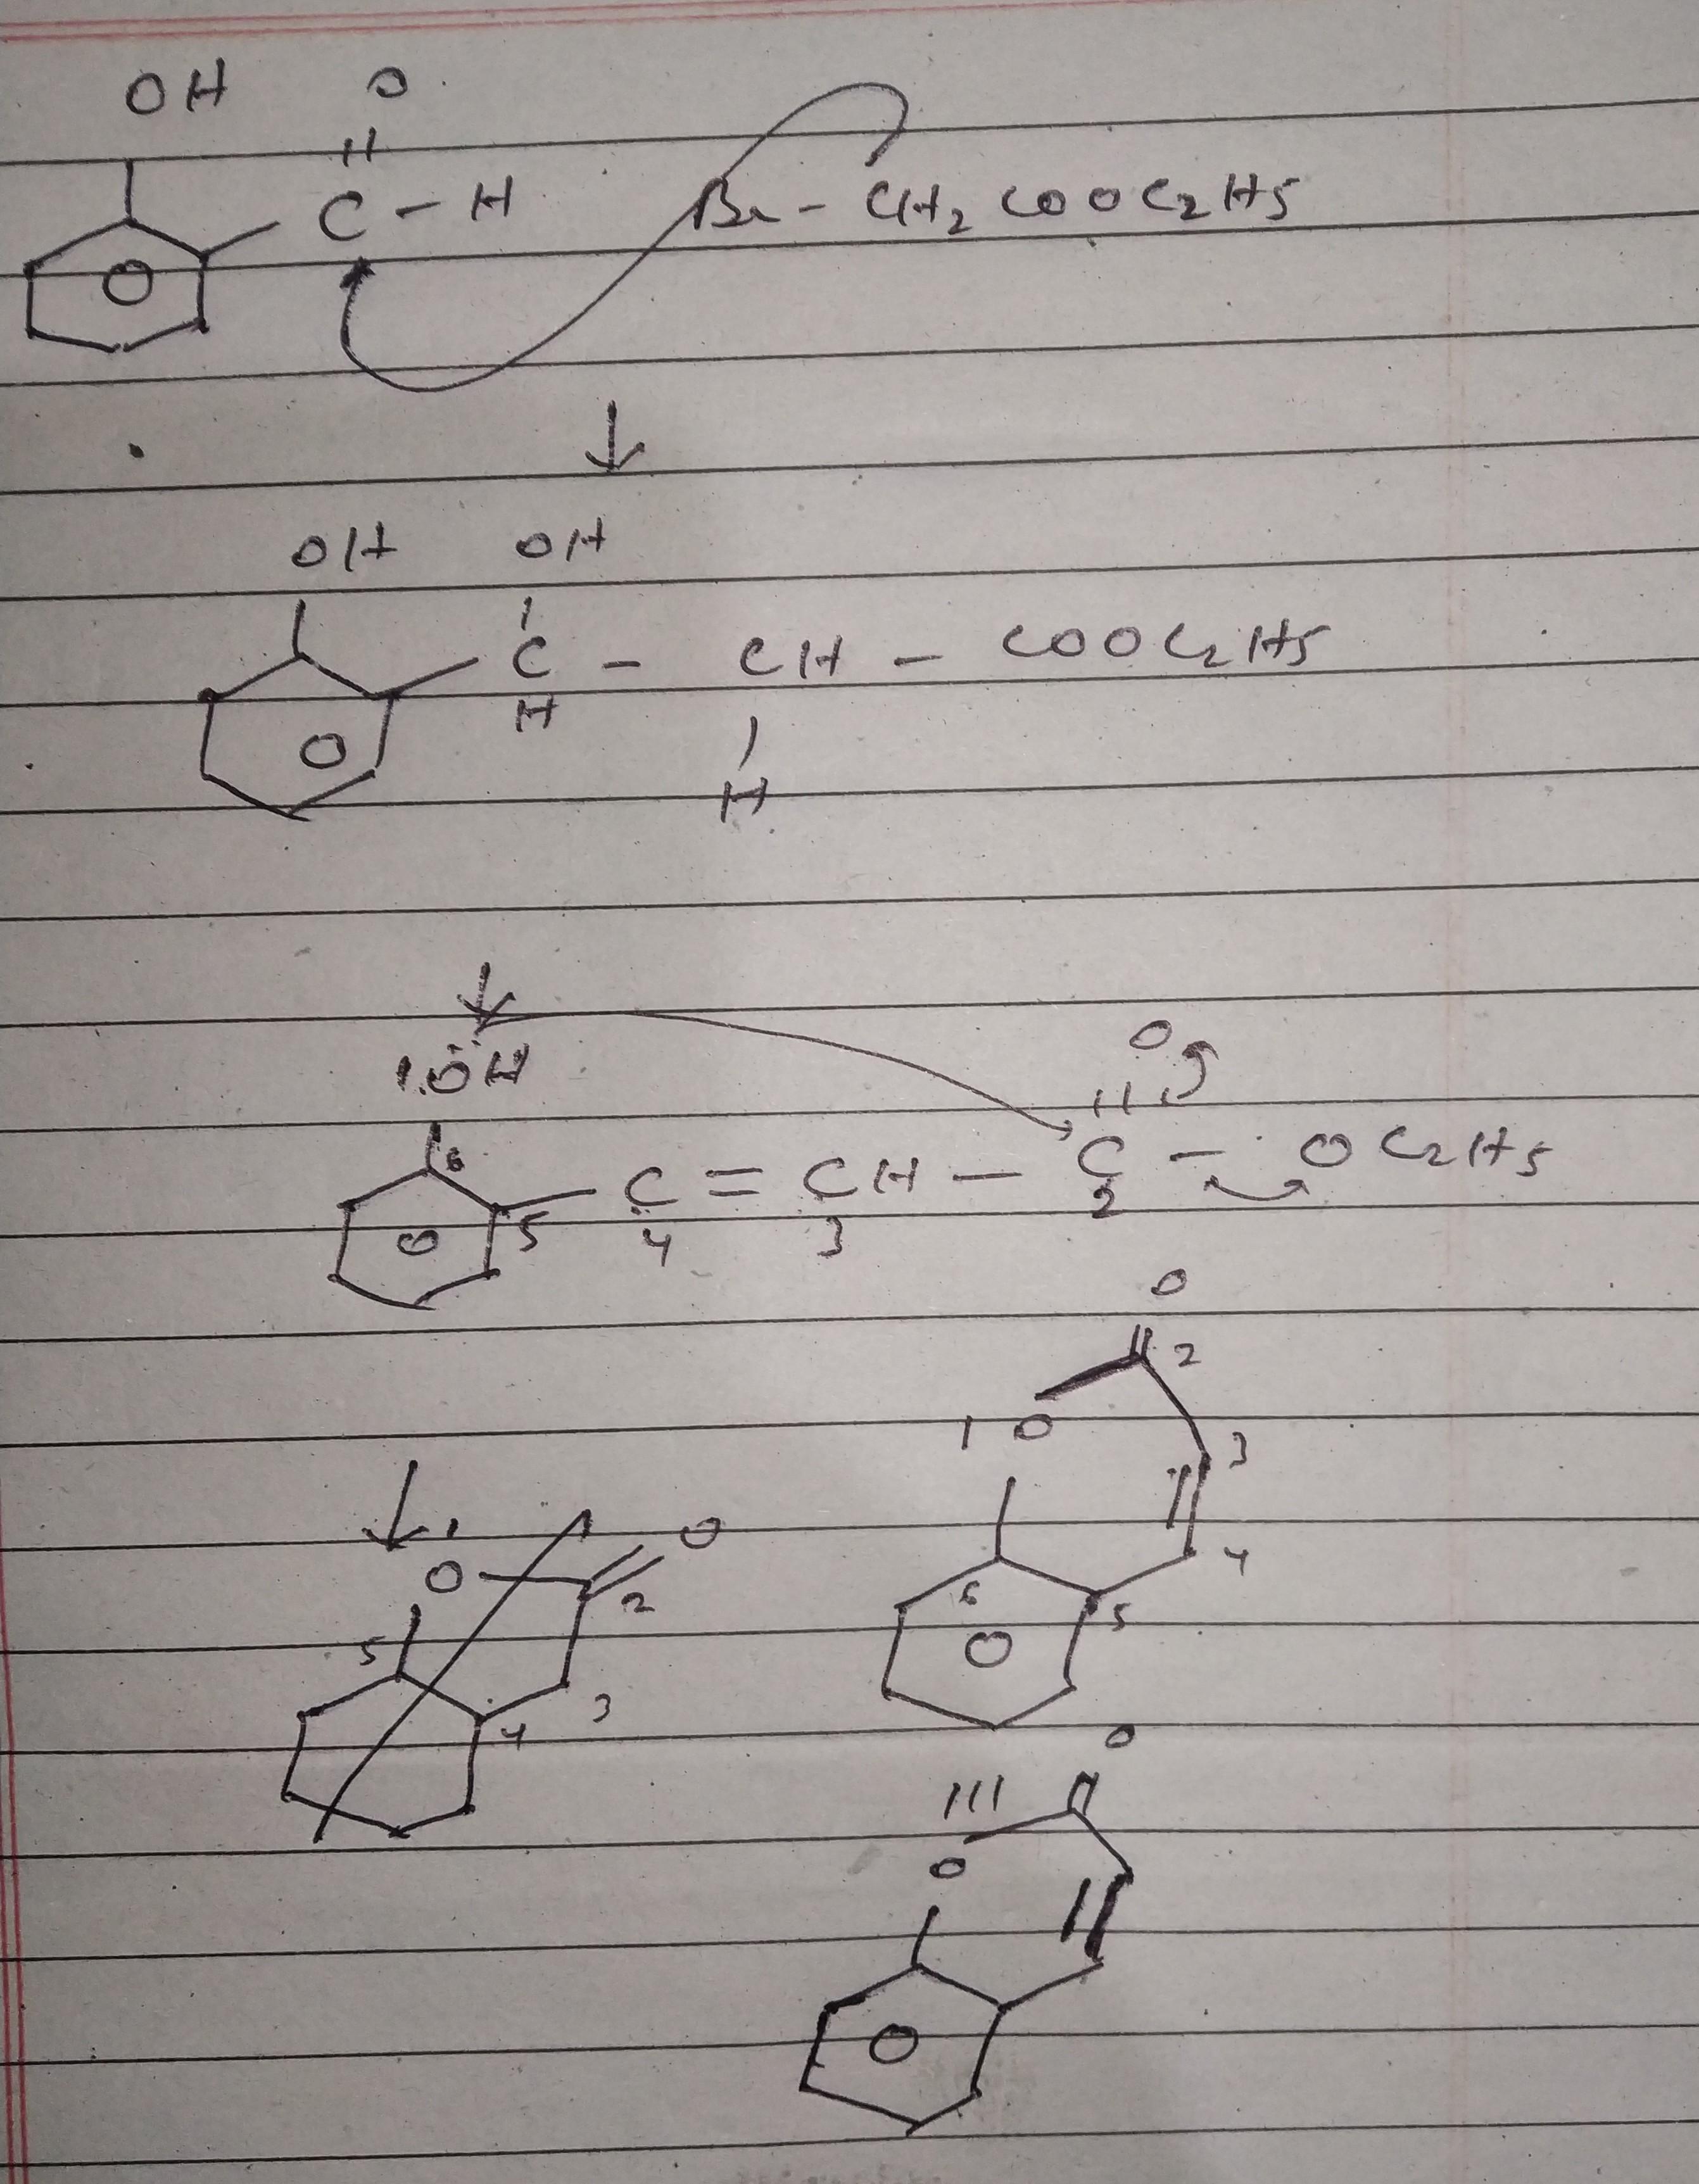 OH O
||
C - H Br - CH2 COOC2H5
OH OH
C - CH - COOC2H5
H
H
1 :ÖH O
||
6
C = CH - C - OC2H5
5 4 3 2
O
|| 2
1 O
3
1
O O
2
4
5
6 5
3
4
O
|||
O